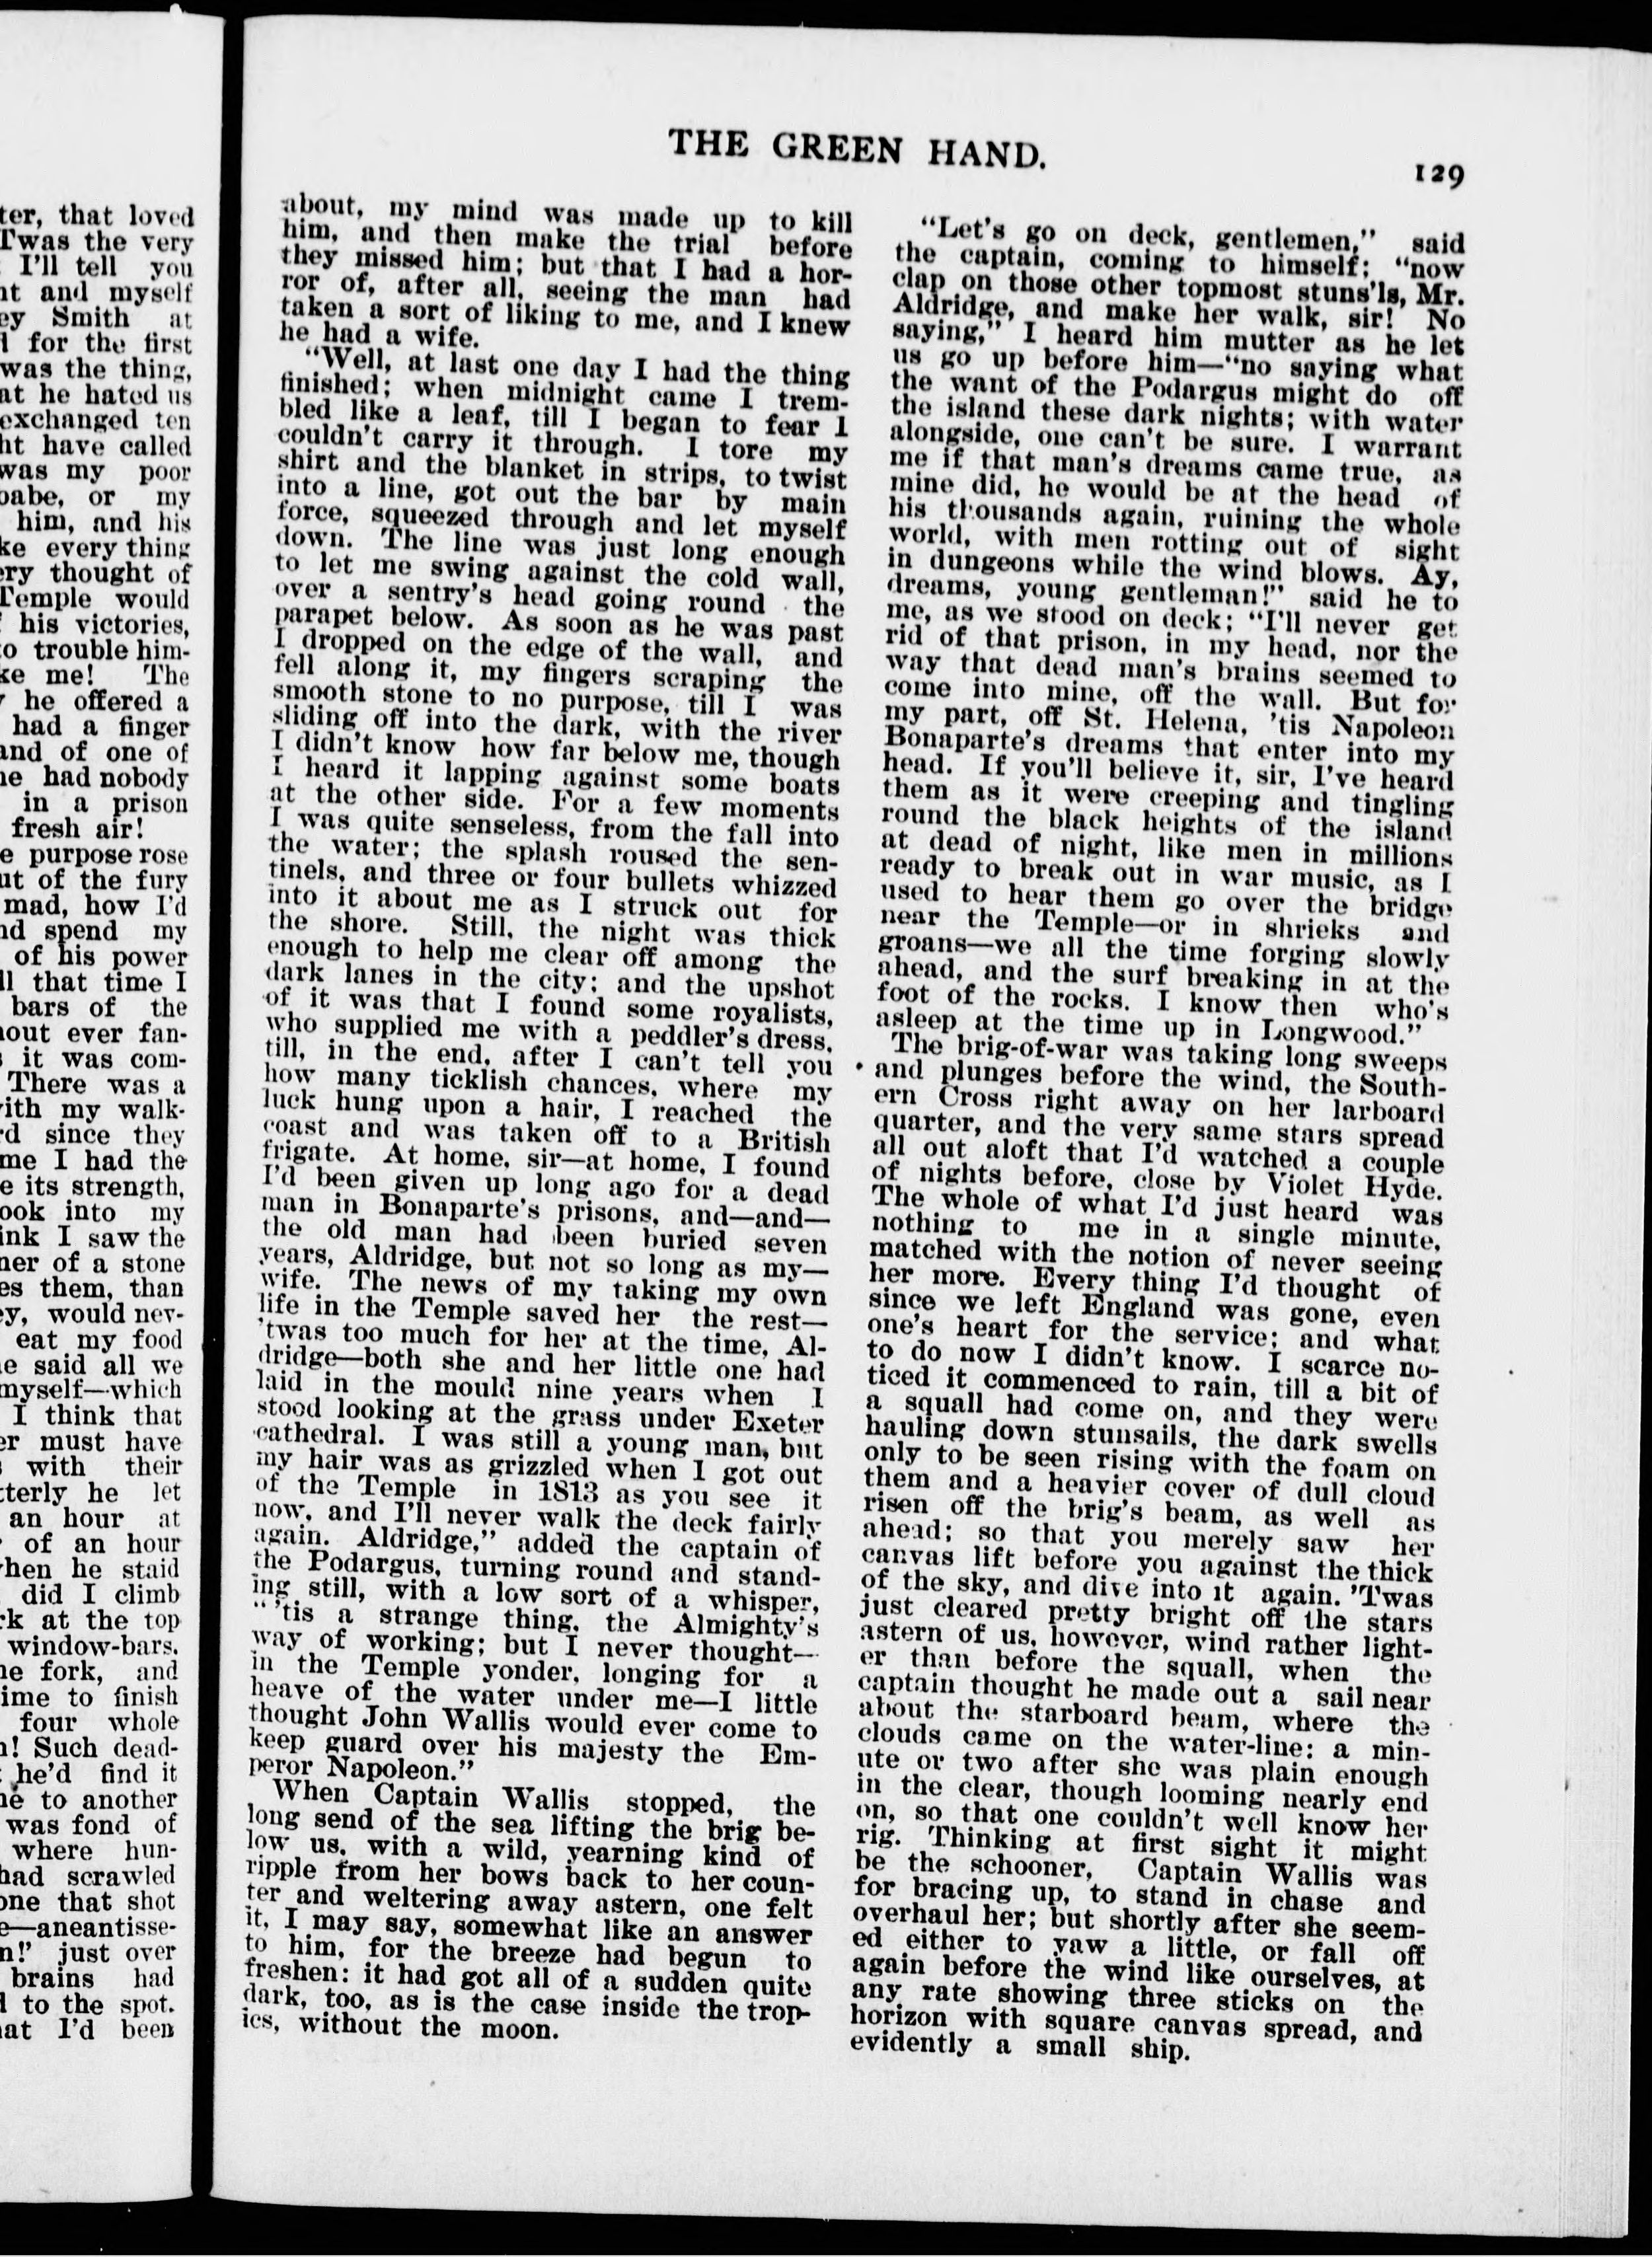 ter, that loved
'Twas the very
I'll tell you
nt and myself
ey Smith at
d for the first
was the thing,
at he hated us
exchanged ten
ht have called
was my poor
babe, or my
him, and his
ke every thing
ery thought of
Temple would
his victories,
to trouble him-
ke me! The
he offered a
had a finger
and of one of
he had nobody
in a prison
fresh air!
e purpose rose
ut of the fury
mad, how I'd
nd spend my
of his power
ll that time I
bars of the
hout ever fan-
it was com-
There was a
with my walk-
rd since they
me I had the
e its strength,
ook into my
ink I saw the
ner of a stone
es them, than
ey, would nev-
eat my food
he said all we
myself—which
I think that
er must have
with their
tterly he let
an hour at
of an hour
when he staid
did I climb
rk at the top
window-bars.
he fork, and
time to finish
four whole
n! Such dead-
he'd find it
ne to another
was fond of
where hun-
had scrawled
one that shot
e—aneantisse-
n!' just over
brains had
d to the spot.
hat I'd been
THE GREEN HAND.
129
about, my mind was made up to kill
him, and then make the trial before
they missed him; but that I had a hor-
ror of, after all, seeing the man had
taken a sort of liking to me, and I knew
he had a wife.
"Well, at last one day I had the thing
finished; when midnight came I trem-
bled like a leaf, till I began to fear I
couldn't carry it through. I tore my
shirt and the blanket in strips, to twist
into a line, got out the bar by main
force, squeezed through and let myself
down. The line was just long enough
to let me swing against the cold wall,
over a sentry's head going round the
parapet below. As soon as he was past
I dropped on the edge of the wall, and
fell along it, my fingers scraping the
smooth stone to no purpose, till I was
sliding off into the dark, with the river
I didn't know how far below me, though
I heard it lapping against some boats
at the other side. For a few moments
I was quite senseless, from the fall into
the water; the splash roused the sen-
tinels, and three or four bullets whizzed
into it about me as I struck out for
the shore. Still, the night was thick
enough to help me clear off among the
dark lanes in the city; and the upshot
of it was that I found some royalists,
who supplied me with a peddler's dress,
till, in the end, after I can't tell you
how many ticklish chances, where my
luck hung upon a hair, I reached the
coast and was taken off to a British
frigate. At home, sir—at home, I found
I'd been given up long ago for a dead
man in Bonaparte's prisons, and—and—
the old man had been buried seven
years, Aldridge, but not so long as my—
wife. The news of my taking my own
life in the Temple saved her the rest—
'twas too much for her at the time, Al-
dridge—both she and her little one had
laid in the mould nine years when I
stood looking at the grass under Exeter
cathedral. I was still a young man, but
my hair was as grizzled when I got out
of the Temple in 1813 as you see it
now, and I'll never walk the deck fairly
again. Aldridge," added the captain of
the Podargus, turning round and stand-
ing still, with a low sort of a whisper,
"'tis a strange thing, the Almighty's
way of working; but I never thought—
in the Temple yonder, longing for a
heave of the water under me—I little
thought John Wallis would ever come to
keep guard over his majesty the Em-
peror Napoleon."
When Captain Wallis stopped, the
long send of the sea lifting the brig be-
low us, with a wild, yearning kind of
ripple from her bows back to her coun-
ter and weltering away astern, one felt
it, I may say, somewhat like an answer
to him, for the breeze had begun to
freshen: it had got all of a sudden quite
dark, too, as is the case inside the trop-
ics, without the moon.
"Let's go on deck, gentlemen," said
the captain, coming to himself; "now
clap on those other topmost stuns'ls, Mr.
Aldridge, and make her walk, sir! No
saying," I heard him mutter as he let
us go up before him—"no saying what
the want of the Podargus might do off
the island these dark nights; with water
alongside, one can't be sure. I warrant
me if that man's dreams came true, as
mine did, he would be at the head of
his thousands again, ruining the whole
world, with men rotting out of sight
in dungeons while the wind blows. Ay,
dreams, young gentleman!" said he to
me, as we stood on deck; "I'll never get
rid of that prison, in my head, nor the
way that dead man's brains seemed to
come into mine, off the wall. But for
my part, off St. Helena, 'tis Napoleon
Bonaparte's dreams that enter into my
head. If you'll believe it, sir, I've heard
them as it were creeping and tingling
round the black heights of the island
at dead of night, like men in millions
ready to break out in war music, as I
used to hear them go over the bridge
near the Temple—or in shrieks and
groans—we all the time forging slowly
ahead, and the surf breaking in at the
foot of the rocks. I know then who's
asleep at the time up in Longwood."
The brig-of-war was taking long sweeps
and plunges before the wind, the South-
ern Cross right away on her larboard
quarter, and the very same stars spread
all out aloft that I'd watched a couple
of nights before, close by Violet Hyde.
The whole of what I'd just heard was
nothing to me in a single minute,
matched with the notion of never seeing
her more. Every thing I'd thought of
since we left England was gone, even
one's heart for the service; and what
to do now I didn't know. I scarce no-
ticed it commenced to rain, till a bit of
a squall had come on, and they were
hauling down stunsails, the dark swells
only to be seen rising with the foam on
them and a heavier cover of dull cloud
risen off the brig's beam, as well as
ahead; so that you merely saw her
canvas lift before you against the thick
of the sky, and dive into it again. 'Twas
just cleared pretty bright off the stars
astern of us, however, wind rather light-
er than before the squall, when the
captain thought he made out a sail near
about the starboard beam, where the
clouds came on the water-line: a min-
ute or two after she was plain enough
in the clear, though looming nearly end
on, so that one couldn't well know her
rig. Thinking at first sight it might
be the schooner, Captain Wallis was
for bracing up, to stand in chase and
overhaul her; but shortly after she seem-
ed either to yaw a little, or fall off
again before the wind like ourselves, at
any rate showing three sticks on the
horizon with square canvas spread, and
evidently a small ship.